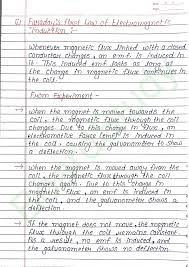 Q) Faraday's First Law of Electromagnetic
Induction :-
Whenever magnetic flux linked with a closed
conductor changes, an emf is induced in
it. This induced emf lasts as long as
the change in magnetic flux continues in
the coil.
From Experiment -
→ When the magnet is moved towards the
coil, the magnetic flux through the coil
changes. Due to this change in flux, an
electromotive force (emf) is induced in
the coil, causing the galvanometer to show
a deflection.
→ When the magnet is moved away from the
coil, the magnetic flux through the coil
changes again. Due to this change in
magnetic flux, an emf is induced in
the coil, and the galvanometer shows
a deflection.
→ If the magnet does not move, the magnetic
flux through the coil remains constant.
As a result, no emf is induced, and
the galvanometer shows no deflection.